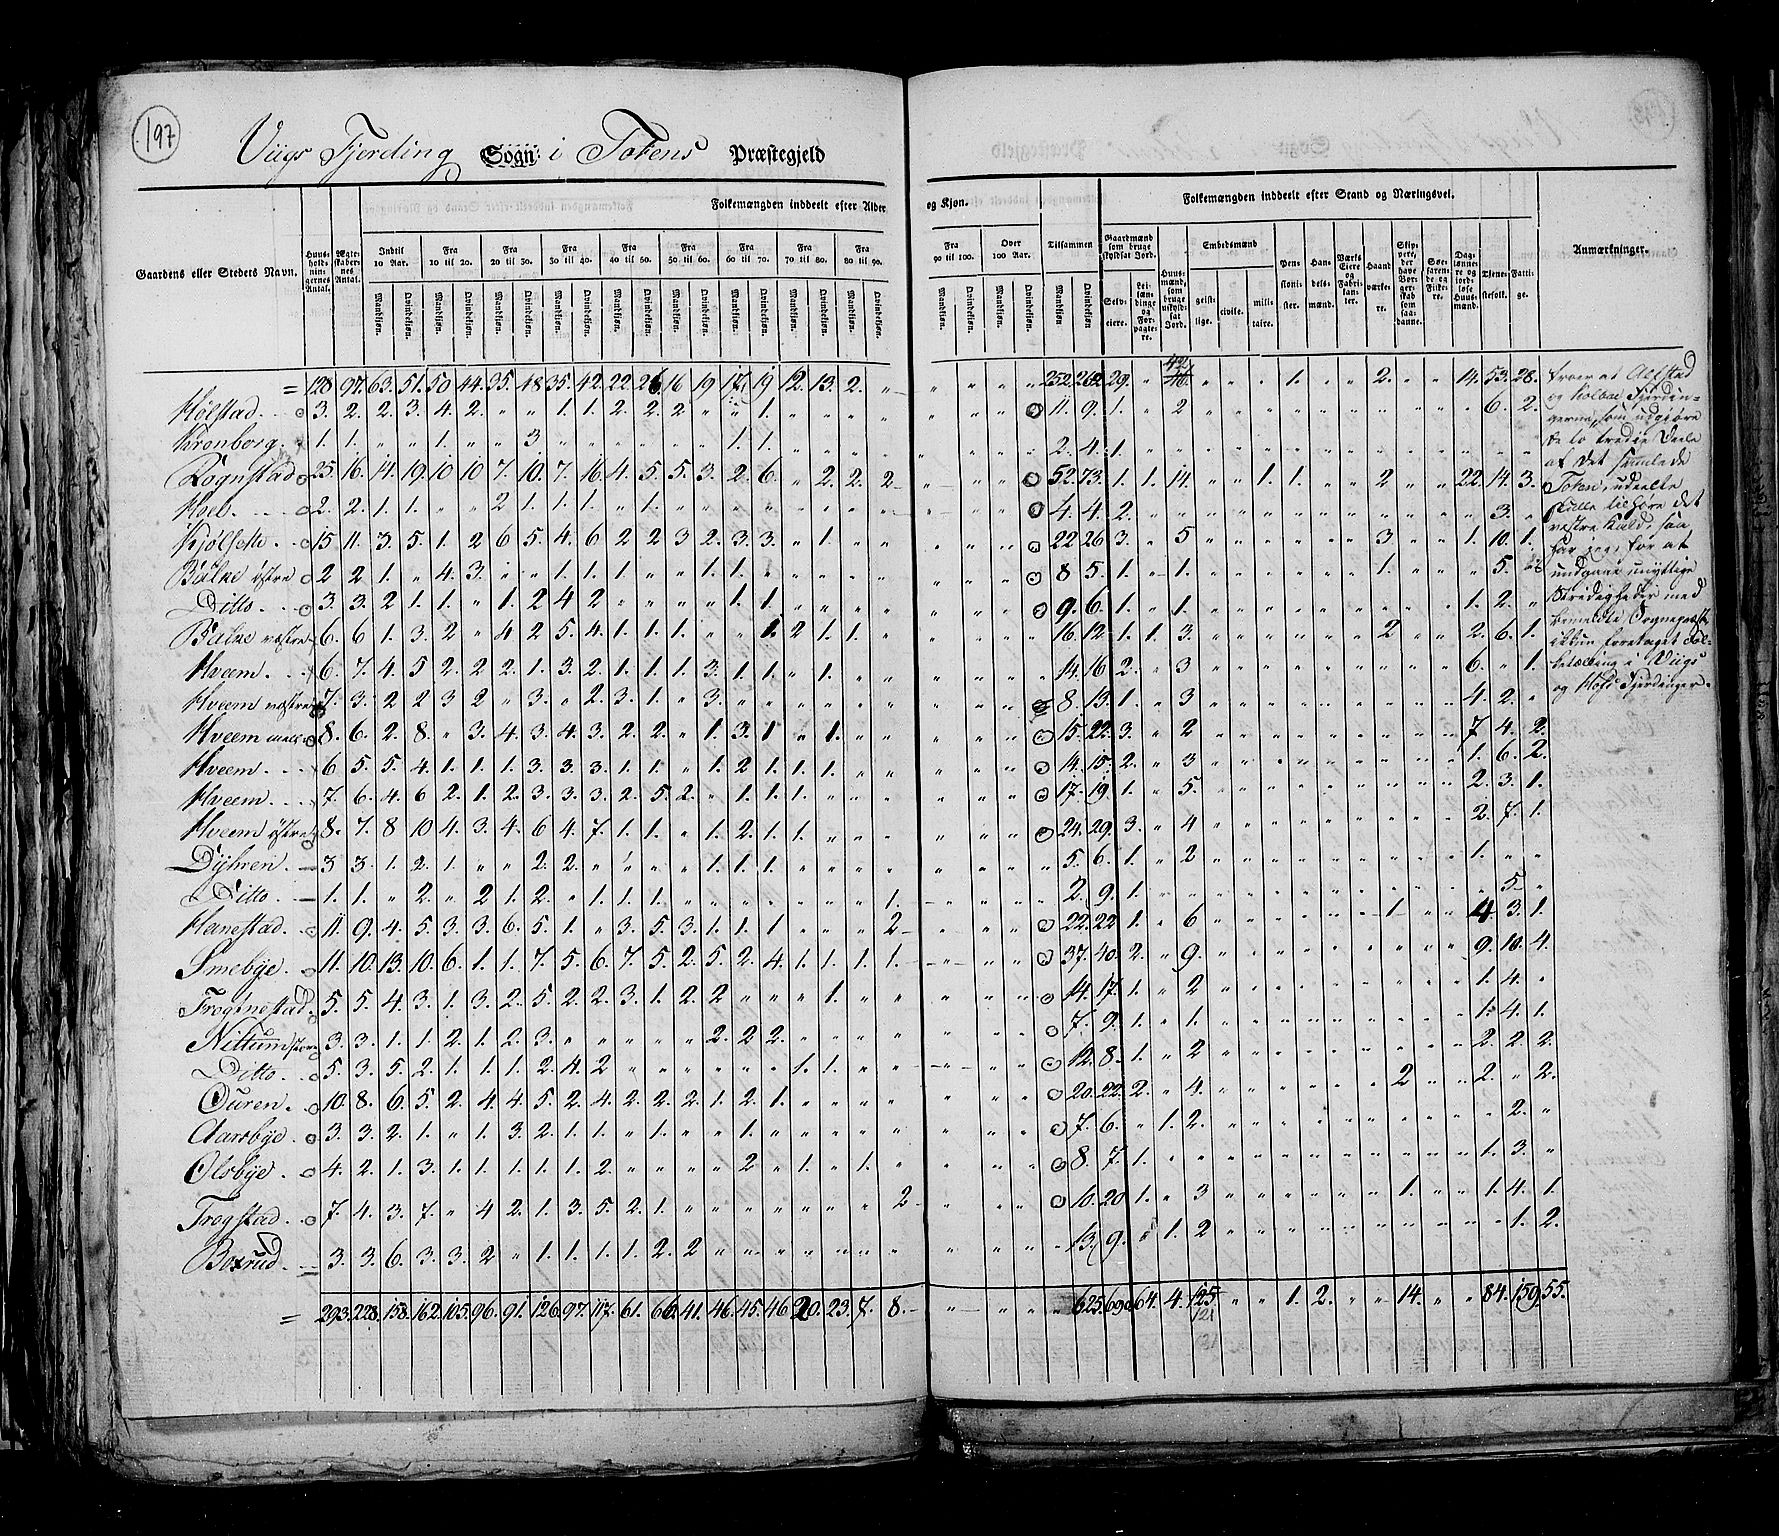 197
Viigs Fjerding Sogn i Totens Præstegjeld
Folkemængden inddeelt efter Alder og Kjøn.
Folkemængden inddeelt efter Stand og Næringsvei.
Gaardens eller Steders Navn.
Huusholdningernes Antal.
Ægteskabernes Antal.
Indtil 10 Aar.
Fra 10 til 20.
Fra 20 til 30.
Fra 30 til 40.
Fra 40 til 50.
Fra 50 til 60.
Fra 60 til 70.
Fra 70 til 80.
Fra 80 til 90.
Fra 90 til 100.
Over 100 Aar.
Tilsammen
Mandkjøn. Qvindekjøn.
Gaardmænd som bruge skyldsat Jord.
Selveiere.
Leilændinge og Forpagtere.
Huusmænd, som bruge uskyldsat Jord.
Embedsmænd
geistlige. civile. militaire.
Pensionister.
Handelsmænd.
Værks Eiere og Fabrikanter.
Haandværkere.
Skippere, der have Borgerskab som saadanne.
Søefarende og Fiskere.
Daglønnere og jordløse Huusmænd.
Tjenestefolk.
Fattige.
Anmærkninger.
= 128. 97. 63. 51. 50. 44. 35. 48. 35. 42. 22. 26. 16 19 17. 19. 12. 13. 2. 252. 262. 29. 42 1. 2. 14. 53. 28.
Hølstad. 3. 2. 2. 3. 4. 2. 1. 1. 2. 2. 2. 1. 11. 9. 1. 2 6. 2.
Kronborg. 1. 1. 1. 3 1. 1. 2. 4. 1.
Rognstad 25. 16. 14. 19. 10 10 7. 10. 7. 16. 4. 5. 5. 3. 2. 6. 2. 2. 2 52. 73. 1. 1. 14. 1. 1. 2 22. 14. 3.
Hoel. 2. 2. 1. 1. 2 1. 1. 1. 1. 4. 4. 2. 3.
Kjølsette 15 11. 3. 5. 1. 2 6 5. 4. 6 2 2 3 2. 3. 3. 1. 22 26 3. 5 3. 1. 10. 1.
Balke østre 2 2 1. 4. 3. 1. 1. 1. 1. 1. 8 5. 1. 1. 1. 5.
Ditto. 3. 3. 2 1. 1. 1. 2 4 2 1. 1. 9. 6. 1. 1. 1. 2.
Balke væstre 6. 6 1. 3. 2 4 2 5. 4. 1. 1. 1. 1. 2 1. 1. 16. 12. 1. 1. 3. 2 2. 6. 1.
Hveem. 6. 7. 4. 5 2. 2 2. 1. 3. 2. 1. 1. 1. 3. 1. 1. 1. 14. 16 2. 3 6. 1.
Hveem væstre 7. 3. 2 2 3 2 3. 2. 3. 1. 3. 8. 13. 1. 3 4. 2.
Hveem mell 8. 6. 2. 8. 3. 4. 3. 4. 3. 2. 2. 1. 3. 1 1. 15. 22. 3. 2 7 4. 2.
Hveem. 6 5. 5. 4. 1. 1. 1. 3. 3. 3. 1. 1. 1. 2 1. 1. 1. 14. 15. 2. 3 1. 6. 2.
Hveem. 7. 6. 4. 6 2. 1. 2. 3. 3. 3. 2. 5. 2. 1. 1. 1. 17. 19. 1. 5. 2. 3. 1.
Hveem østre 8. 7. 8 10 4. 3. 4. 6 4. 7. 1. 1. 1. 2. 1. 1. 24. 29. 3. 4 2. 7. 1.
Dijhren. 3 3. 1. 2. 1. 2. 2. 1. 1. 1. 5. 6. 1. 2 1.
Ditto. 1. 1. 2. 2 1. 2. 1. 1. 1. 1. 2. 9. 1. 5
Hanestad. 11. 9. 4. 5. 3. 3. 6. 5. 1. 3. 5. 3. 1. 1. 1. 2 22. 22 1. 6 1 4 3. 1.
Smebÿe. 11. 10. 13. 10. 6. 1. 1. 7. 5. 6. 7. 5. 2. 5. 2. 4. 1. 1. 1. 1. 37. 40. 2. 9. 9. 10. 4.
Frøgnestad. 5. 5. 4. 3. 1. 3. 2. 5. 2. 2. 3. 1. 2. 2 1. 14. 17. 1. 2 1. 4.
Nittum store 3. 3. 1. 1. 2. 1. 2. 3. 2. 2. 2. 7. 9. 1. 1. 1. 4. 1.
Ditto. 5. 3. 5. 2. 1. 1. 1. 2. 4. 2 1. 1. 12. 8. 1. 2 2. 2. 2.
Ouren. 10. 8. 6. 5. 2. 4. 4. 5. 2. 4. 2. 2. 2. 1. 2. 1. 20. 22. 2. 4. 2 2. 2.
Aarsbÿe. 3. 3. 2. 1. 1. 3. 2. 1. 1. 1. 1. 7. 6. 1. 2. 2.
Olsbÿe 4. 2. 1. 3. 1. 1. 1. 1. 1. 2. 2 1. 1. 8. 7. 1. 1. 3.
Trogstad. 7. 4. 3. 7. 4 2. 1. 3. 5. 2. 1. 2 10. 20 1. 3 1. 1. 4. 1.
Boxrud. 3. 3. 6. 3. 3. 2 1. 1. 1. 1. 2. 2 13. 9. 1. 2 1. 2.
= 293. 228. 158. 162. 105. 96. 91. 126. 97. 117. 61. 66. 41. 46. 45. 46. 20. 23. 7. 8. 625. 690. 64. 4. 125 1. 2. 14. 84. 159. 55.
121
troer at Allstad
og Kolboe Fjerdin-
gerne, som udgiøre
de to tredie Deele
af det samlede
Toten, udeelte
skulle tilhøre det
væstre Kald, saa
har jeg, for at
undgaae unyttige
Stridigheder med
bemeldte Sognepræst
ikkun foretaget Fol-
ketælling i Viigs
og Hofs Fjerdinger.